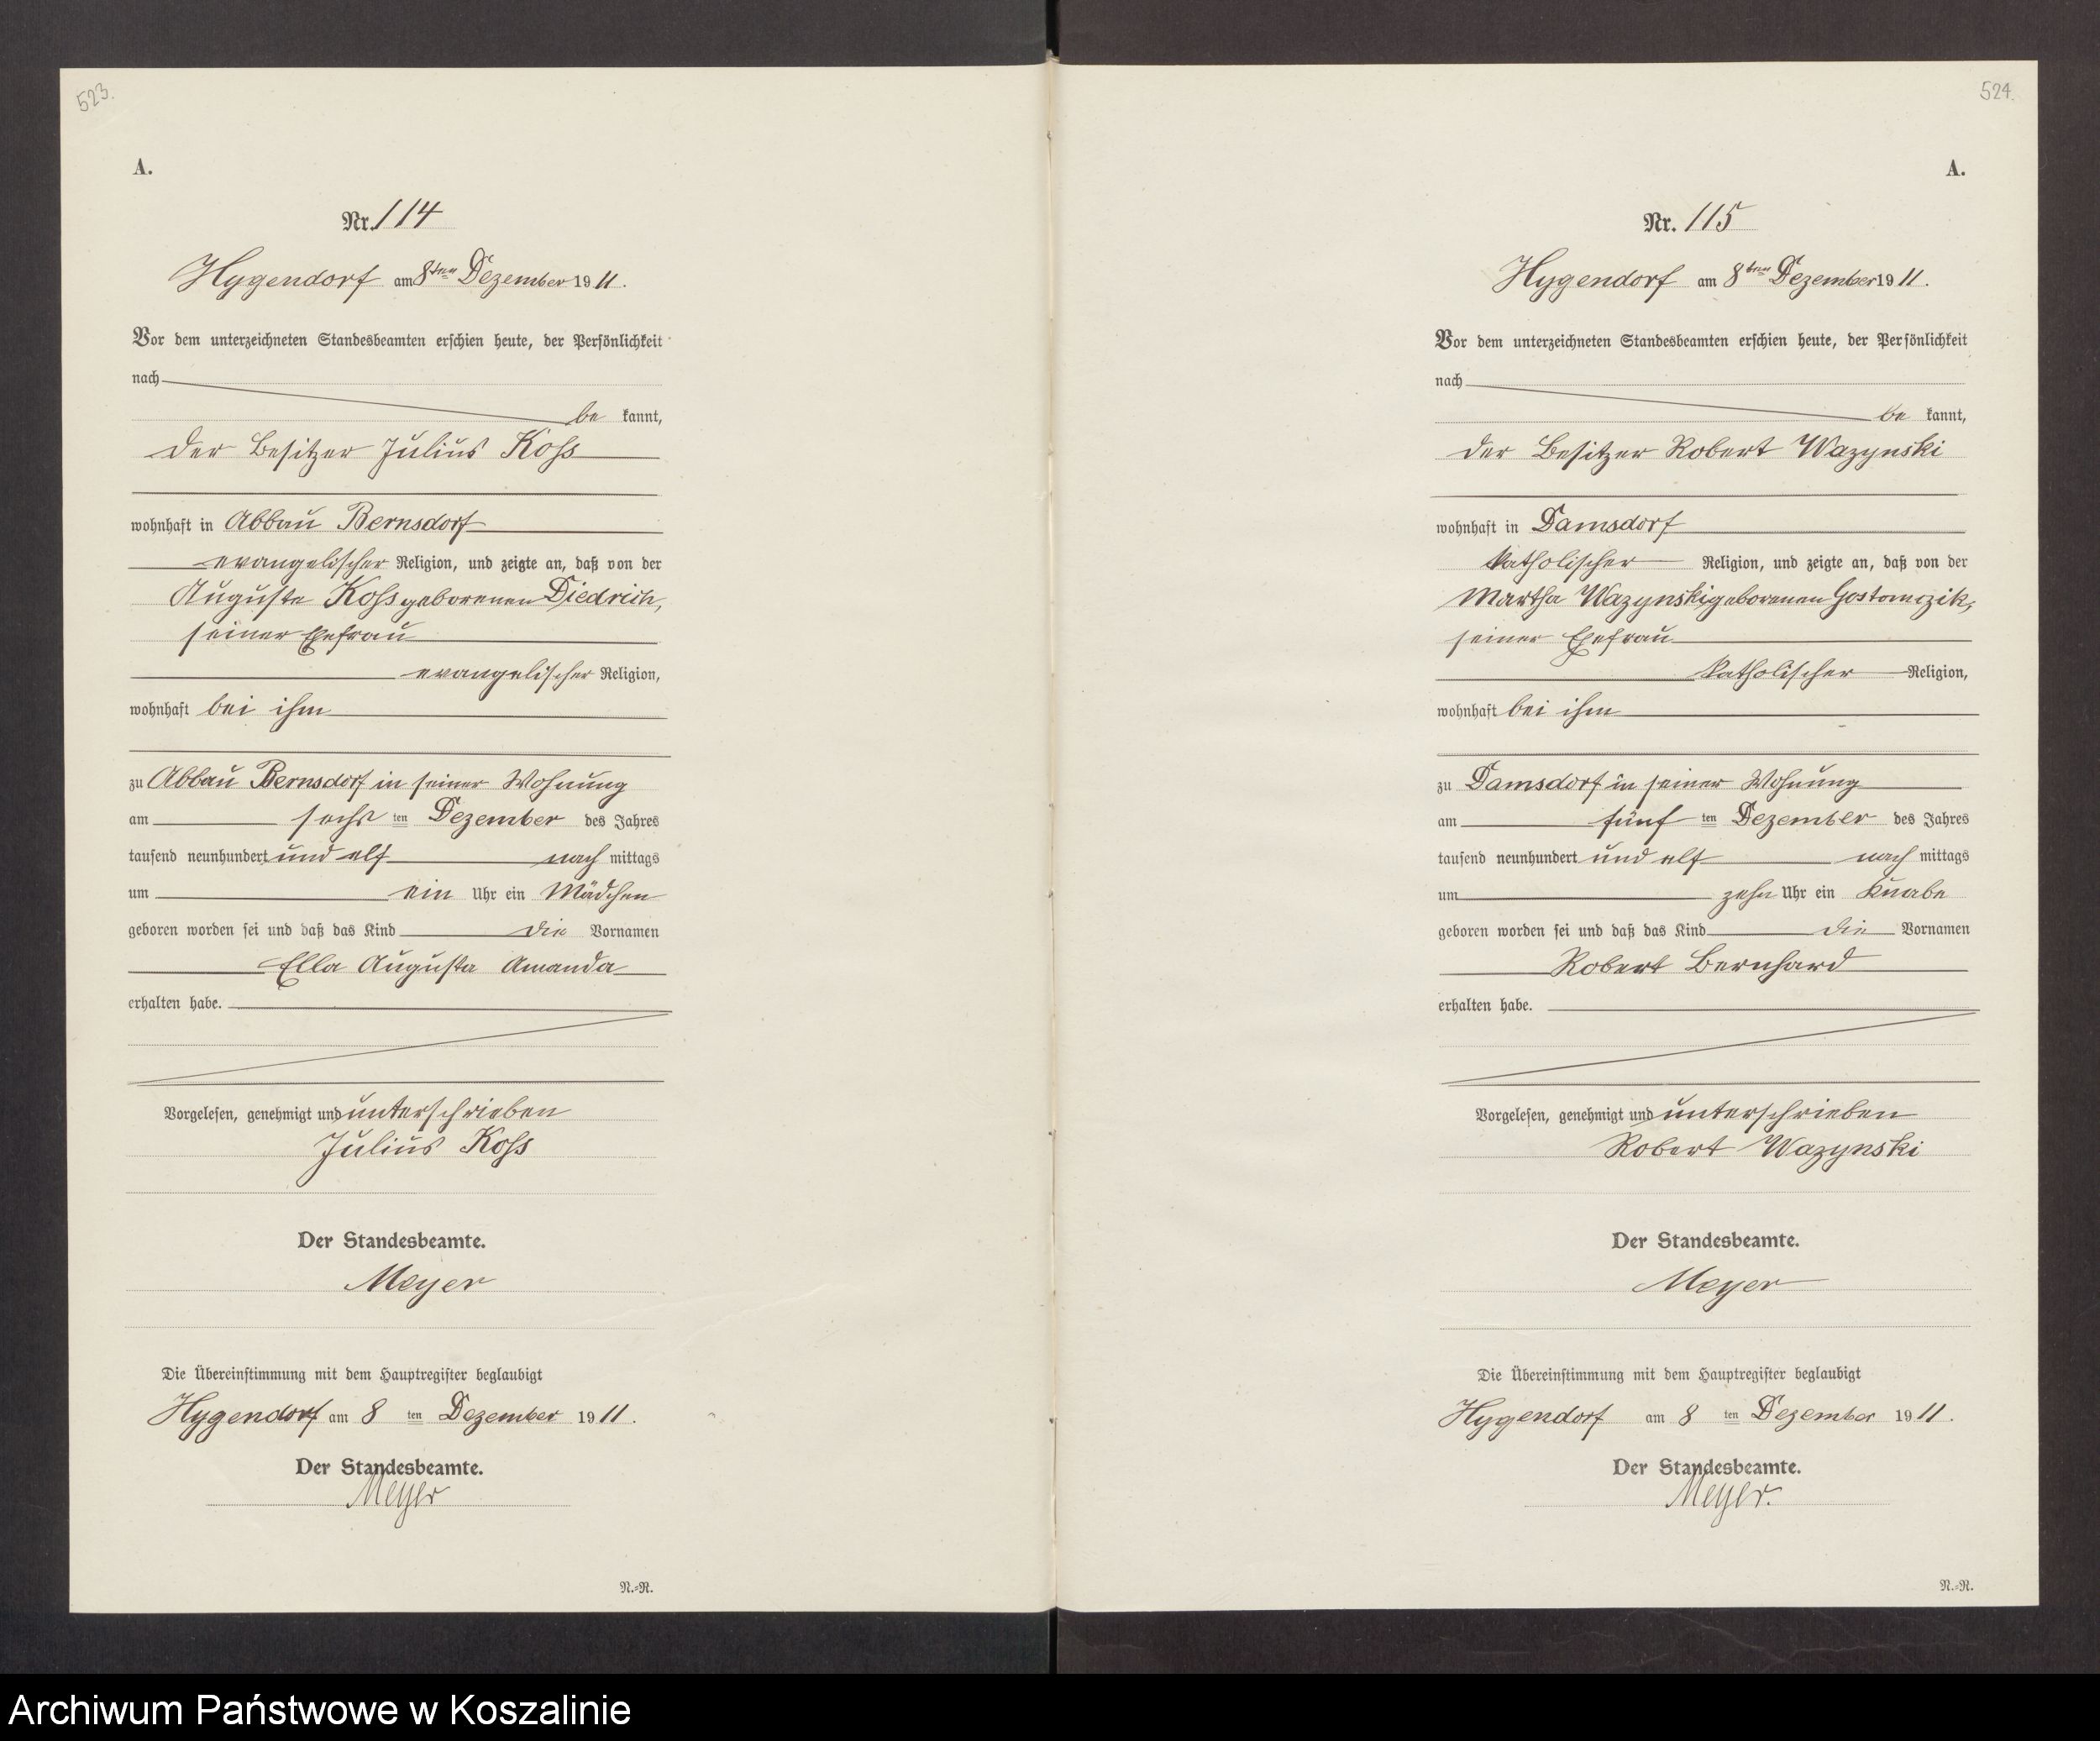 523.
A.
Nr. 114
Hygendorf am 8ten Dezember 1911.
Vor dem unterzeichneten Standesbeamten erschien heute, der Persönlichkeit
nach
be kannt,
der Besitzer Julius Koss
wohnhaft in Abbau Bernsdorf
evangelischer Religion, und zeigte an, daß von der
Auguste Koss geborenen Diedrich,
seiner Ehefrau
evangelischer Religion,
wohnhaft bei ihm
zu Abbau Bernsdorf in seiner Wohnung
am sechs ten Dezember des Jahres
tausend neunhundert und elf nach mittags
um ein Uhr ein Mädchen
geboren worden sei und daß das Kind die Vornamen
Ella Augusta Amanda
erhalten habe.
Vorgelesen, genehmigt und unterschrieben
Julius Koss
Der Standesbeamte.
Meyer
Die Übereinstimmung mit dem Hauptregister beglaubigt
Hygendorf am 8 ten Dezember 1911.
Der Standesbeamte.
Meyer
N.=R.
524.
A.
Nr. 115
Hygendorf am 8ten Dezember 1911.
Vor dem unterzeichneten Standesbeamten erschien heute, der Persönlichkeit
nach
be kannt,
der Besitzer Robert Wazynski
wohnhaft in Damsdorf
katholischer Religion, und zeigte an, daß von der
Martha Wazynski geborenen Gostomczik,
seiner Ehefrau
katholischer Religion,
wohnhaft bei ihm
zu Damsdorf in seiner Wohnung
am fünf ten Dezember des Jahres
tausend neunhundert und elf nach mittags
um zehn Uhr ein Knabe
geboren worden sei und daß das Kind die Vornamen
Robert Bernhard
erhalten habe.
Vorgelesen, genehmigt und unterschrieben
Robert Wazynski
Der Standesbeamte.
Meyer
Die Übereinstimmung mit dem Hauptregister beglaubigt
Hygendorf am 8 ten Dezember 1911.
Der Standesbeamte.
Meyer.
N.=R.
Archiwum Państwowe w Koszalinie